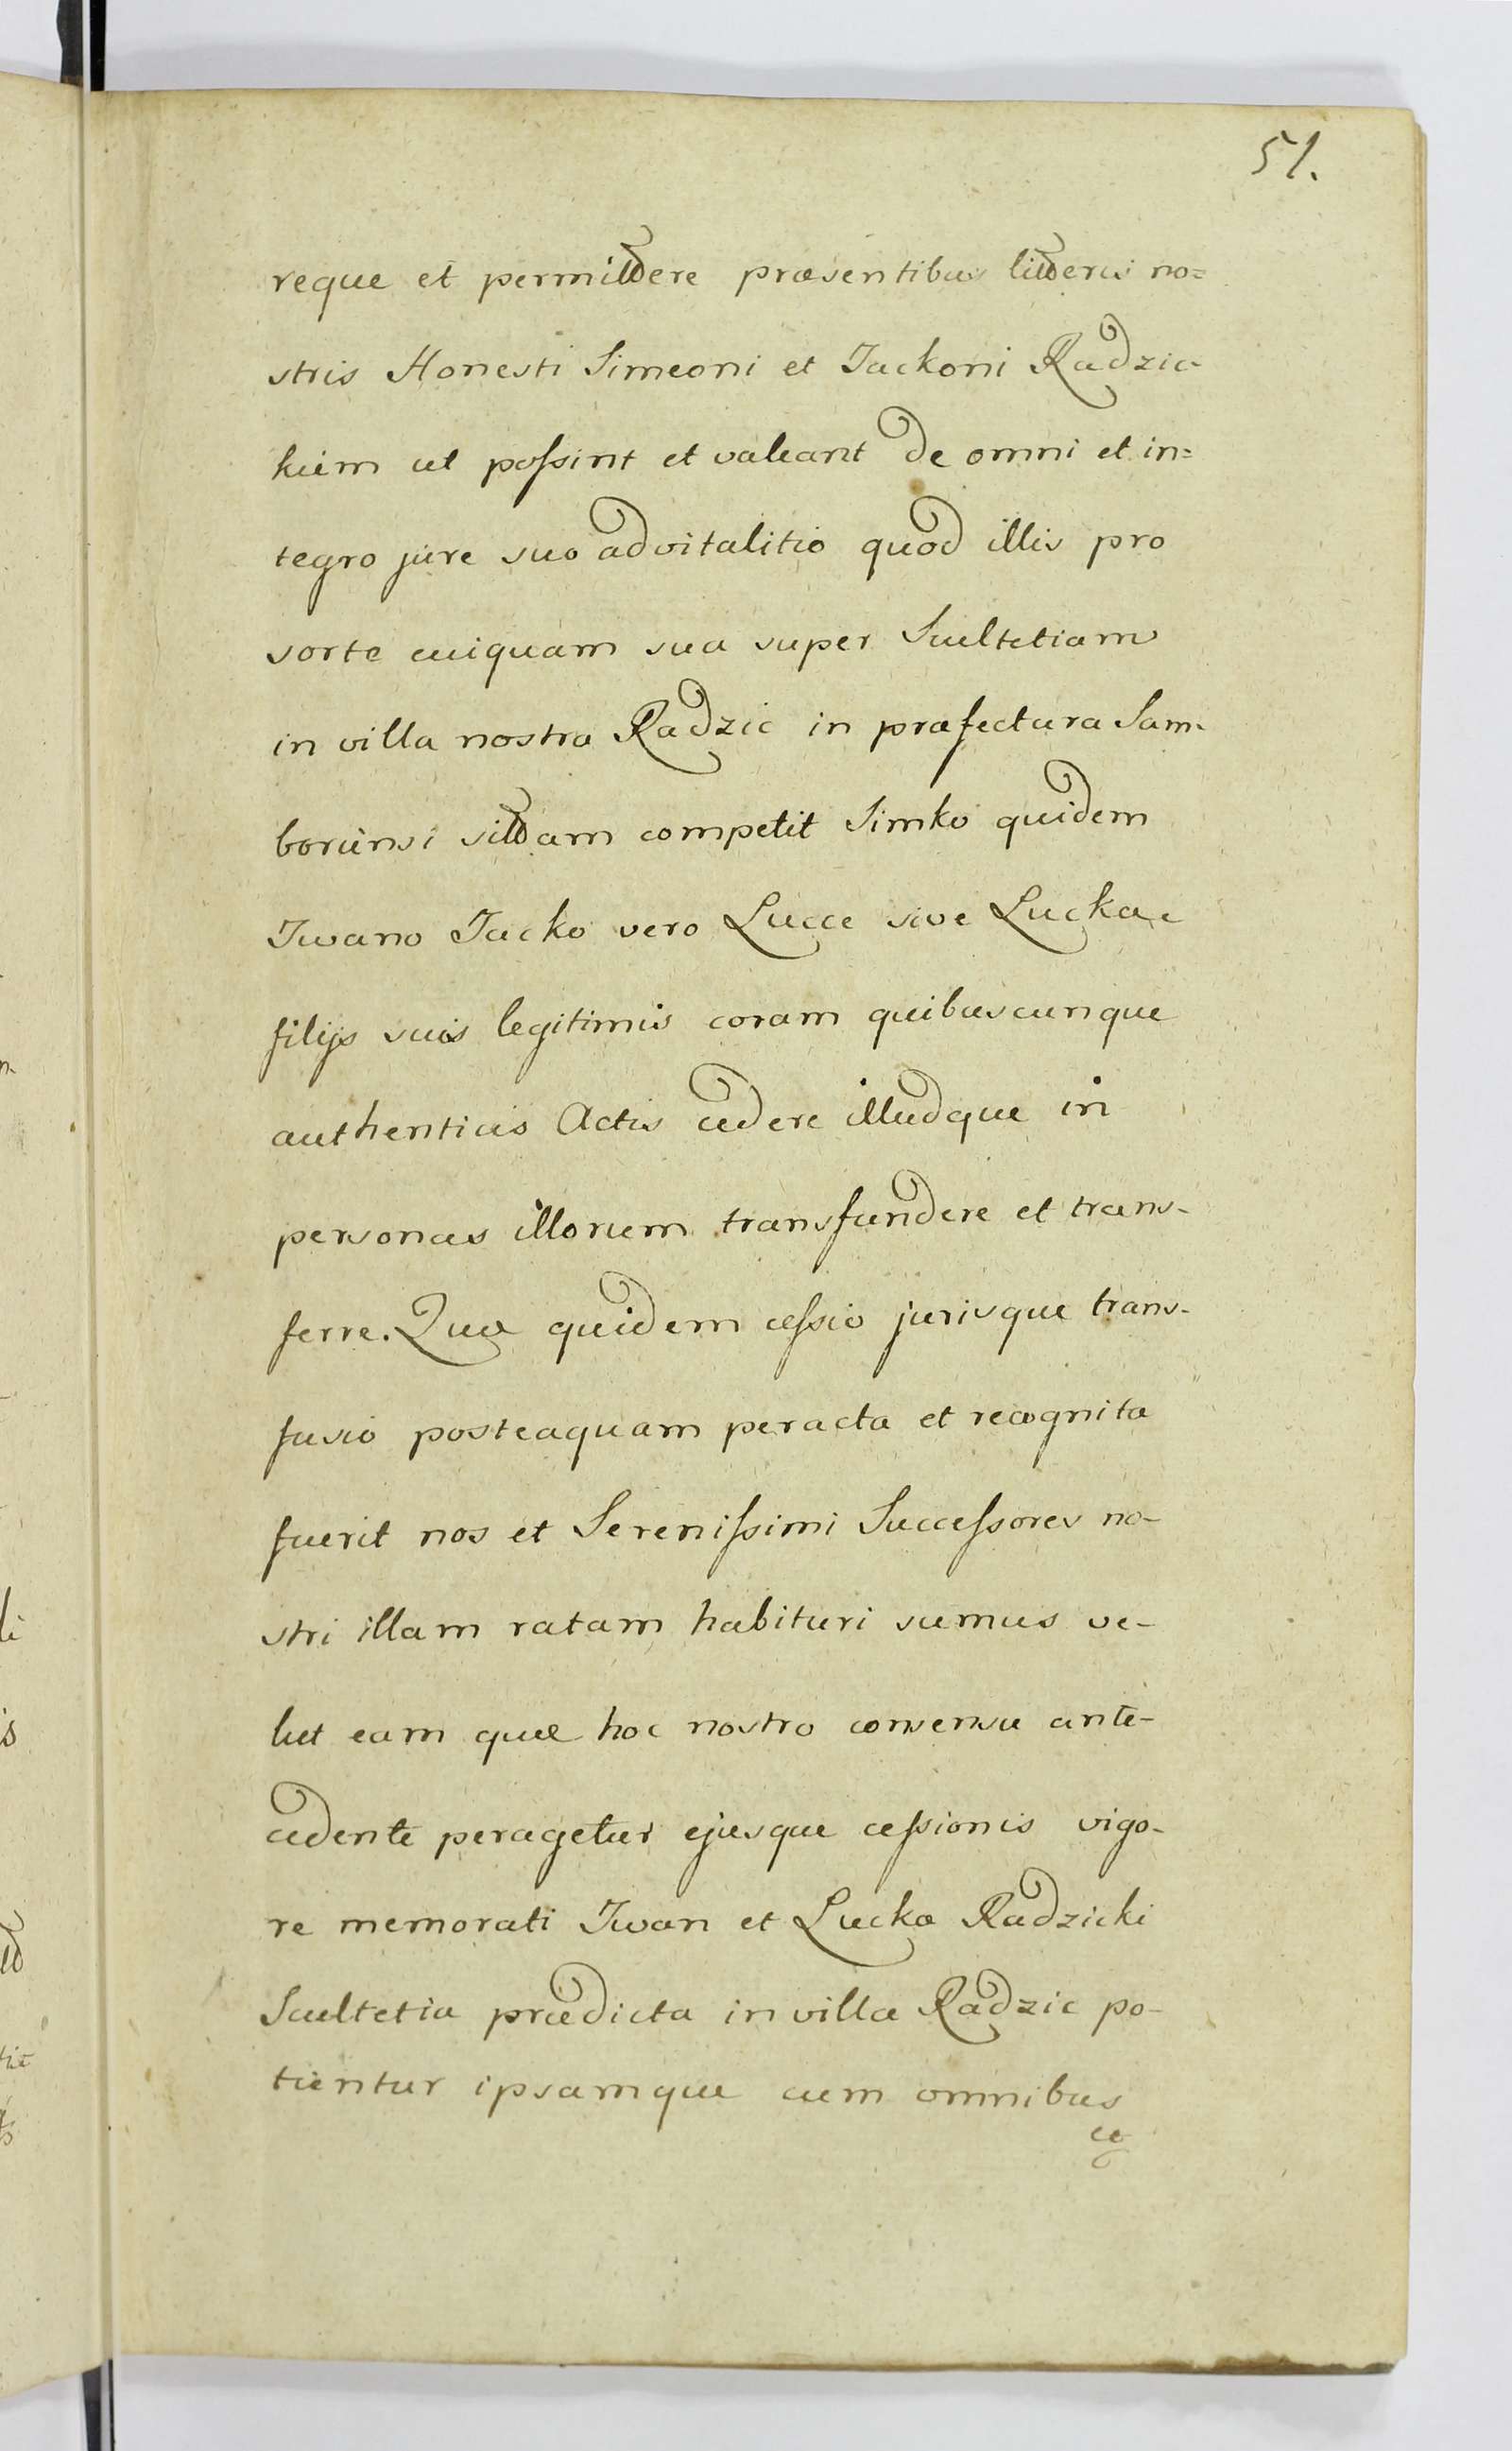 51.
reque et permittere præsentibus litteris no=
stris Honesti Simeoni et Jackoni Radzic-
kiem ut possint et valeant de omni et in=
tegro jure suo advitalitio quod illis pro
sorte cuiquam sua super Scultetiam
in villa nostra Radzic in præfectura Sam-
boriensi sittam competit Simko quidem
Iwano Jacko vero Lucce sive Luckae
filijs suis legitimis coram quibuscunque
authenticis Actis cedere illudque in
personas illorum transfundere et trans-
ferre. Quæ quidem cessio jurisque trans-
fusio posteaquam peracta et recognita
fuerit nos et Serenissimi Successores no-
stri illam ratam habituri sumus ve-
lut eam quæ hoc nostro consensu ante-
cedente peragetur ejusque cessionis vigo-
re memorati Iwan et Lucka Radzicki
Scultetia prædicta in villa Radzic po-
tientur ipsamque cum omnibus